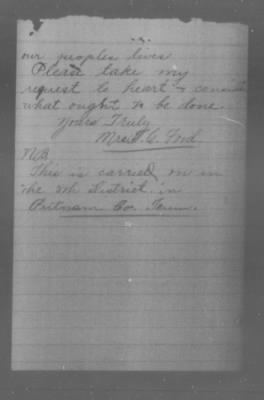 our peoples lives
Please take my
request to heart & consider
what ought to be done.
Yours Truly
Mrs. Ford.
N.B.
This is carried on in
the District in
Putnam Co. Tenn.